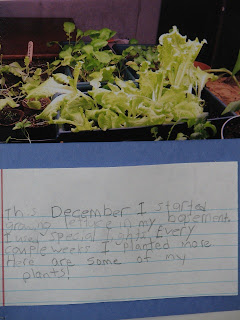 This December I started
growing lettuce in my basement.
I used special lights. Every
couple weeks I planted more.
Here are some of my
plants!